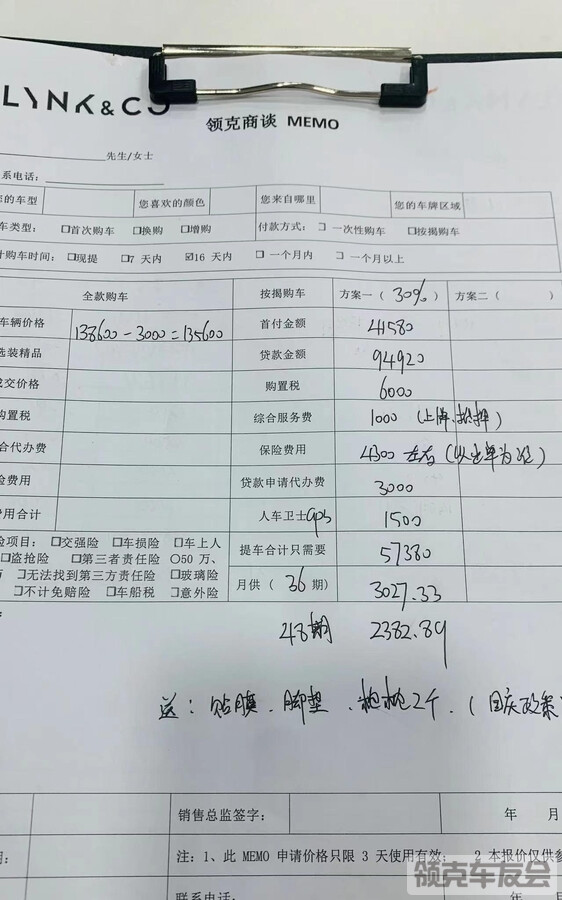 LYNK&CO
领克商谈 MEMO
先生/女士
系电话:
的车型 您喜欢的颜色 您来自哪里 您的车牌区域
车类型: □首次购车 □换购 □增购 付款方式: □ 一次性购车 □按揭购车
计购车时间: □现提 □7 天内 ☑16 天内 □ 一个月内 □ 一个月以上
全款购车 按揭购车 方案一 ( 30% ) 方案二 ( )
车辆价格 138600-3000=135600 首付金额 41580
选装精品 贷款金额 94920
成交价格 购置税 6000
购置税 综合服务费 1000 (上牌、拓排)
合代办费 保险费用 4300 左右 (以出单为准)
险费用 贷款申请代办费 3000
费用合计 人车卫士 gps 1500
险项目: □交强险 □车损险 □车上人 提车合计只需要 57380
□盗抢险 □第三者责任险 ○50 万、
□无法找到第三方责任险 □玻璃险 月供 ( 36 期) 3027.33
□不计免赔险 □车船税 □意外险
48期 2382.89
送: 贴膜、脚垫、 2个. (国庆政策
销售总监签字: 年 月
期: 注: 1、此 MEMO 申请价格只限 3 天使用有效; 2 本报价仅供参
联系电话:
领克车友会